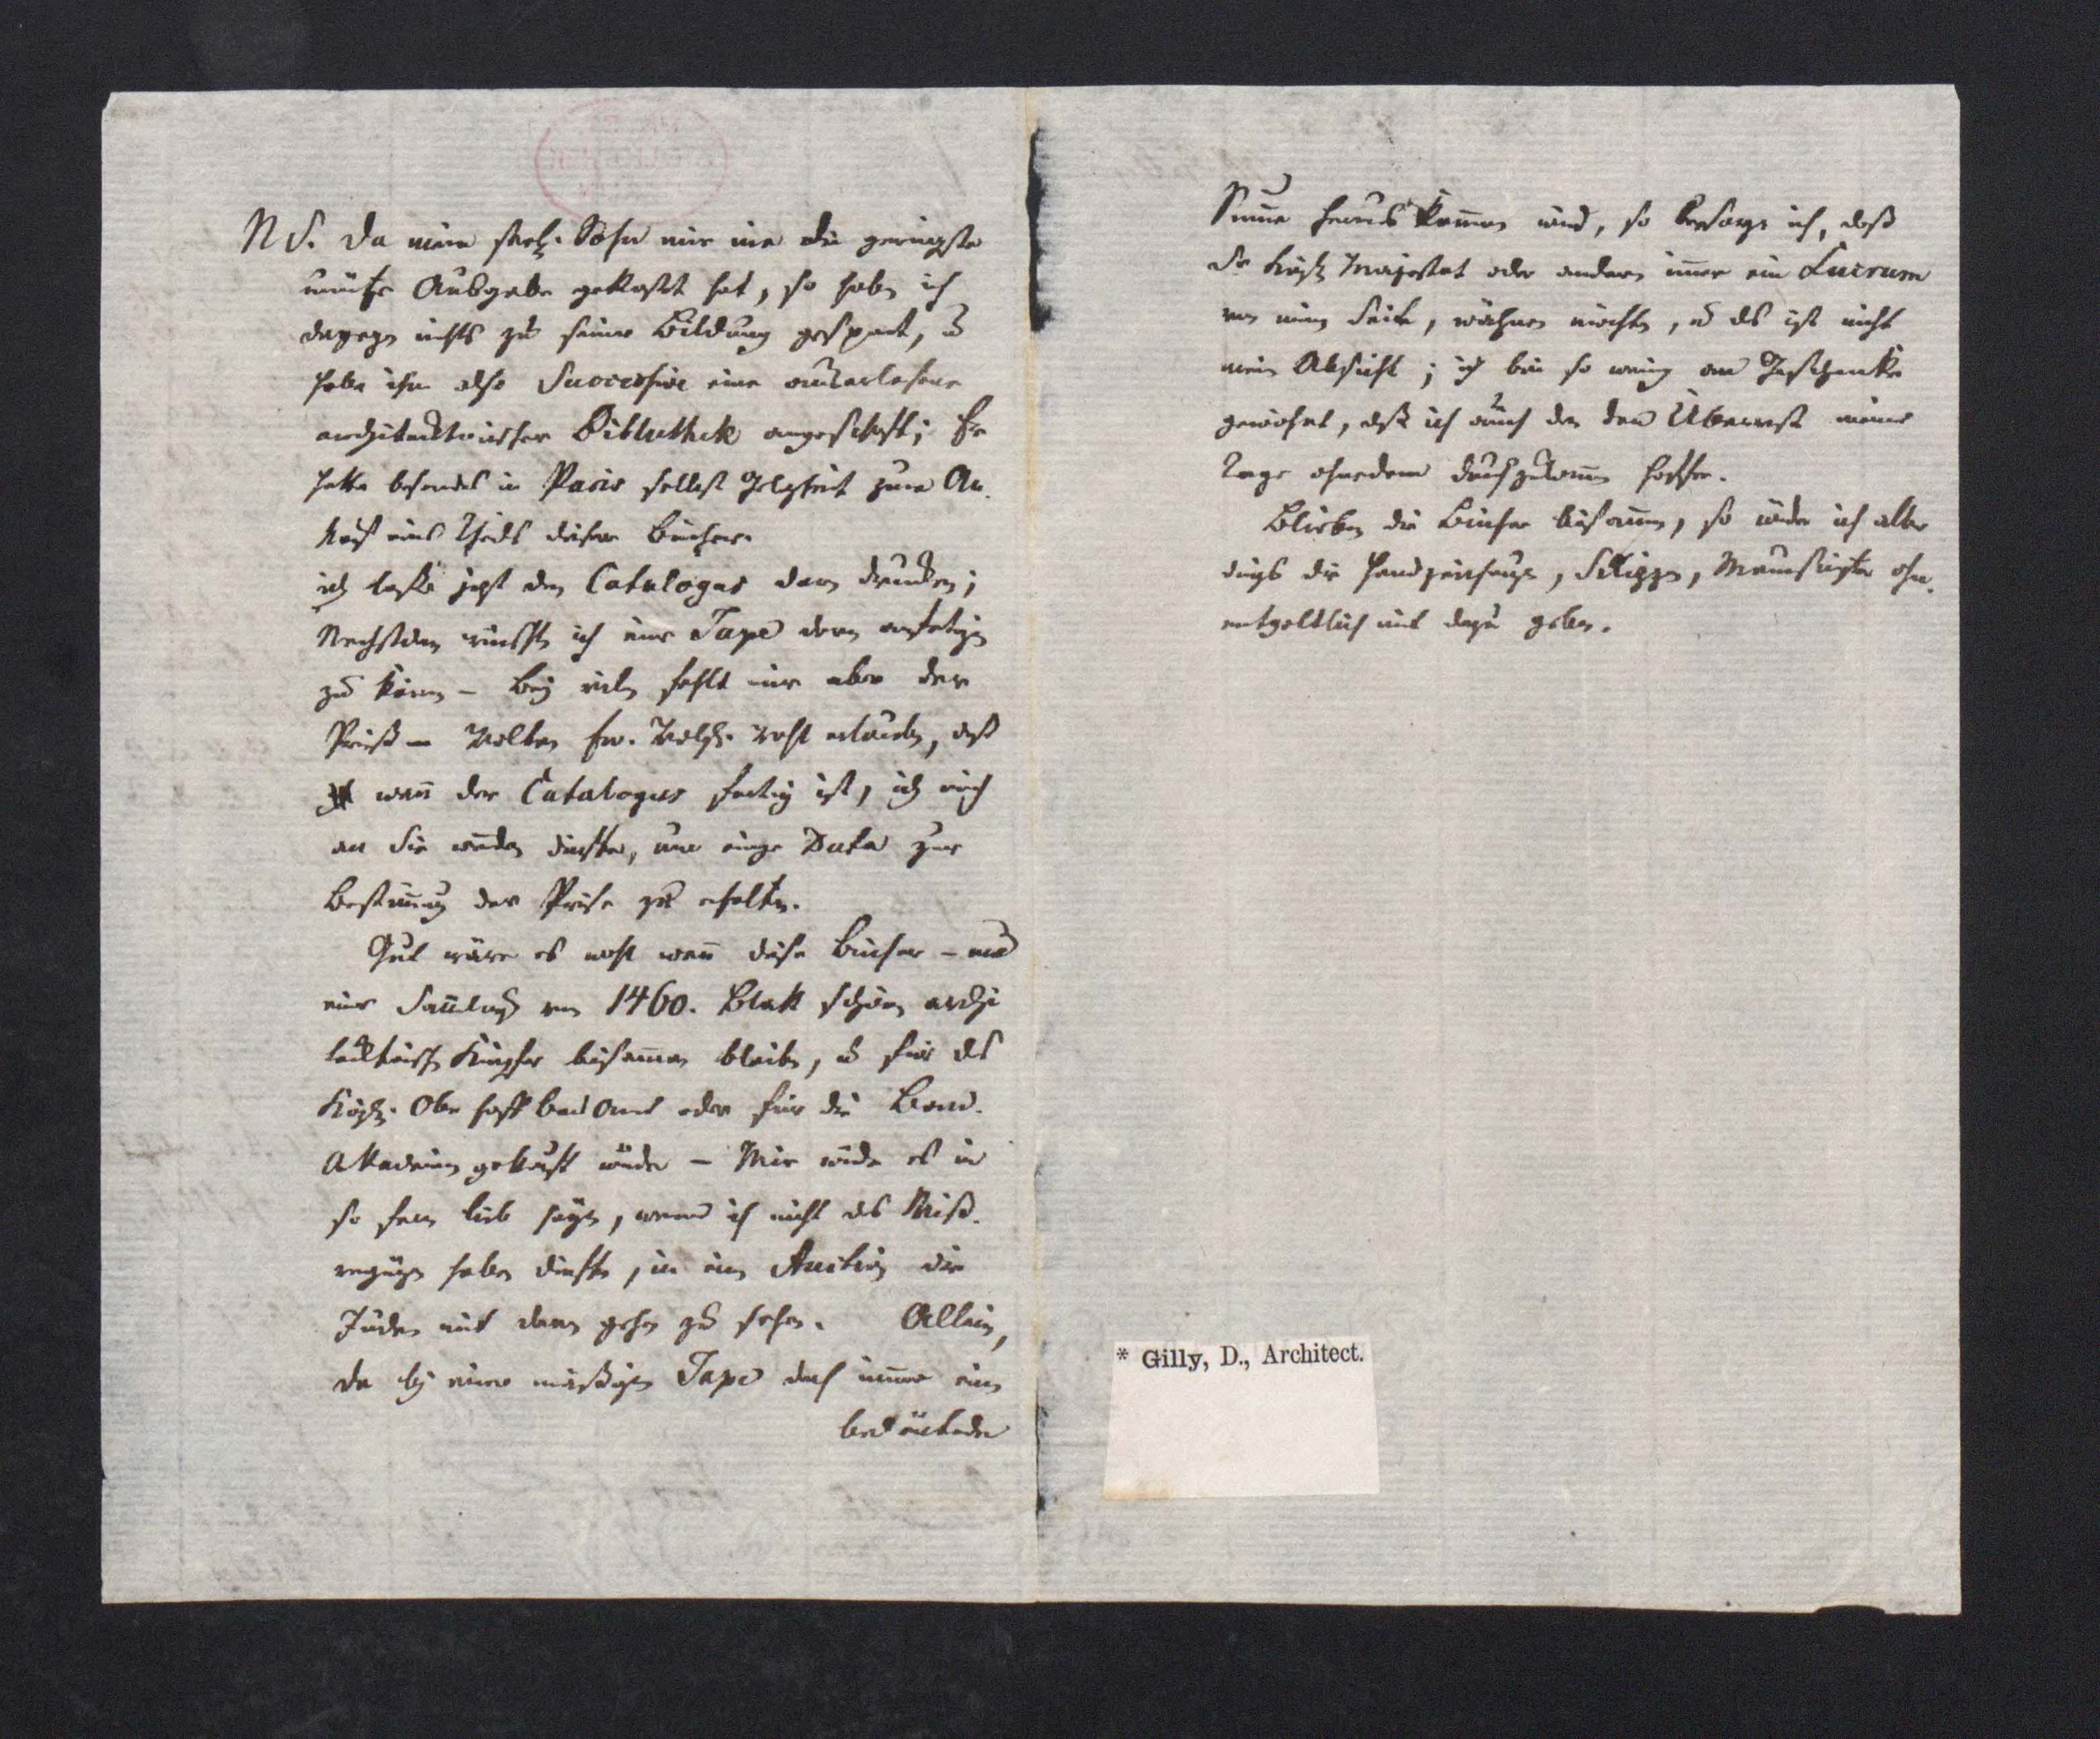 NS. Da mein seel. Sohn mir nie die geringste
unnütze Ausgabe gekostet hat, so habe ich
dagegen nichts zu seiner Bildung gespart, u
habe ihm also Successive eine auserlesene
architektonische Bibliothek angeschaft; Er
hatte besonders in Paris selbst Gelegenheit zum An-
kauf eines Theils dieser Bücher.
ich lasse jetzt den Catalogus davon drucken;
Nechstdem wünscht ich eine Taxe davon anfertigen
zu können – bey vielen fehlt mir aber der
Preiß – Wollten Ew. wohl erlauben, daß
wenn der Catalogus fertig ist, ich mich
an Sie wenden dürfte, um einige Data zur
Bestimmung der Preise zu erhalten.
Gut wäre es wohl wenn diese Bücher – und
eine Sammlung von 1460. Blatt schöner archi
tecktonische Kupfer beisammen bleiben, u für das
Königl. Ober Hoff bau Amt oder für die Bau-
Akademie gekauft würde – Mir würde es in
so fern lieb seyn, wenn ich nicht das Miß-
vergnügen haben dürfte, in einer Auction die
Juden mit davon gehen zu sehen. Allein,
da bey einer mäßigen Taxe doch immer eine
bedeutende
Summe heraus kommen wird, so besorge ich, daß
Se Königl Majestät oder andere immer ein Lucrum
von meiner Seite, wähnen möchten, u das ist nicht
meine Absicht; ich bin so wenig an Geschenke
gewöhnt, daß ich auch den Überrest meiner
Tage ohnedem durchzukommen hoffe.
Blieben die Bücher beisammen, so würde ich aller
dings die Handzeichnungen, Skizzen, Manuscripte ohn-
entgeltlich mit dazu geben.
* Gilly, D., Architect.